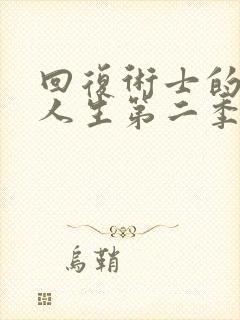 回復術士的
人生第二季
烏鞘